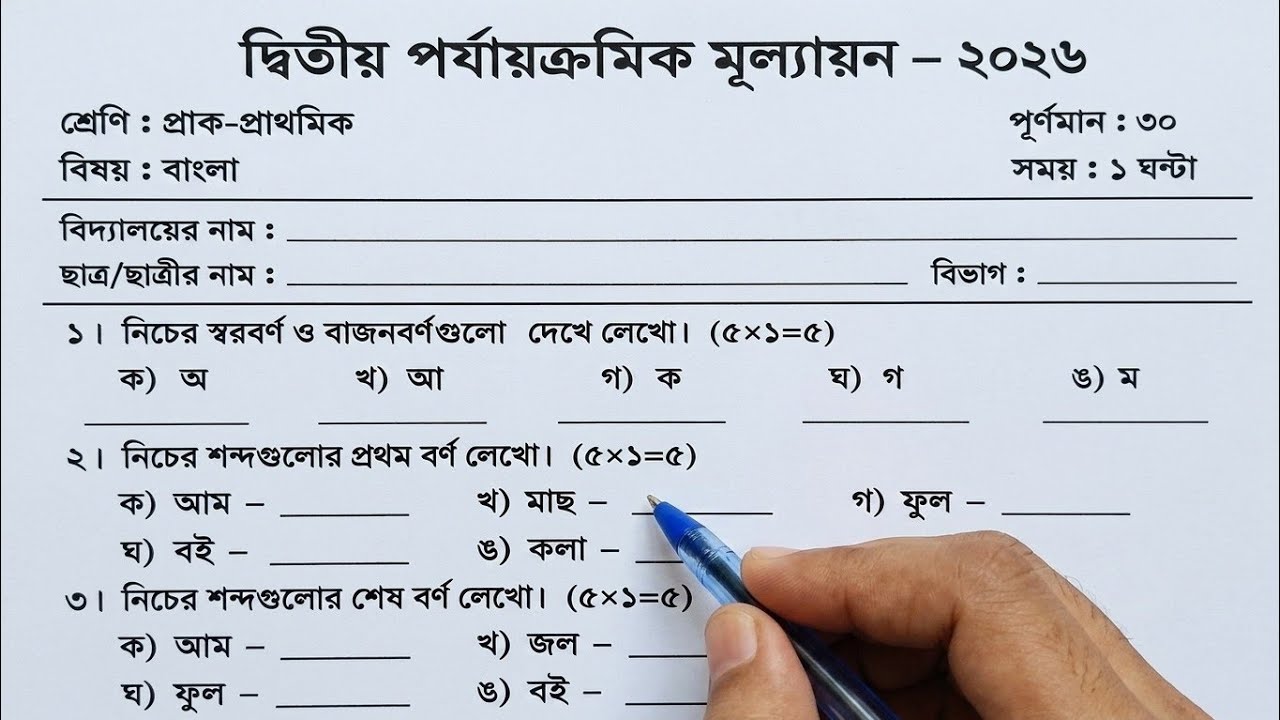 দ্বিতীয় পর্যায়ক্রমিক মূল্যায়ন – ২০২৬
শ্রেণি : প্রাক-প্রাথমিক পূর্ণমান : ৩০
বিষয় : বাংলা সময় : ১ ঘন্টা
বিদ্যালয়ের নাম :
ছাত্র/ছাত্রীর নাম : বিভাগ :
১। নিচের স্বরবর্ণ ও বাজনবর্ণগুলো দেখে লেখো। (৫×১=৫)
ক) অ খ) আ গ) ক ঘ) গ ঙ) ম
২। নিচের শব্দগুলোর প্রথম বর্ণ লেখো। (৫×১=৫)
ক) আম – খ) মাছ – গ) ফুল –
ঘ) বই – ঙ) কলা –
৩। নিচের শব্দগুলোর শেষ বর্ণ লেখো। (৫×১=৫)
ক) আম – খ) জল –
ঘ) ফুল – ঙ) বই –